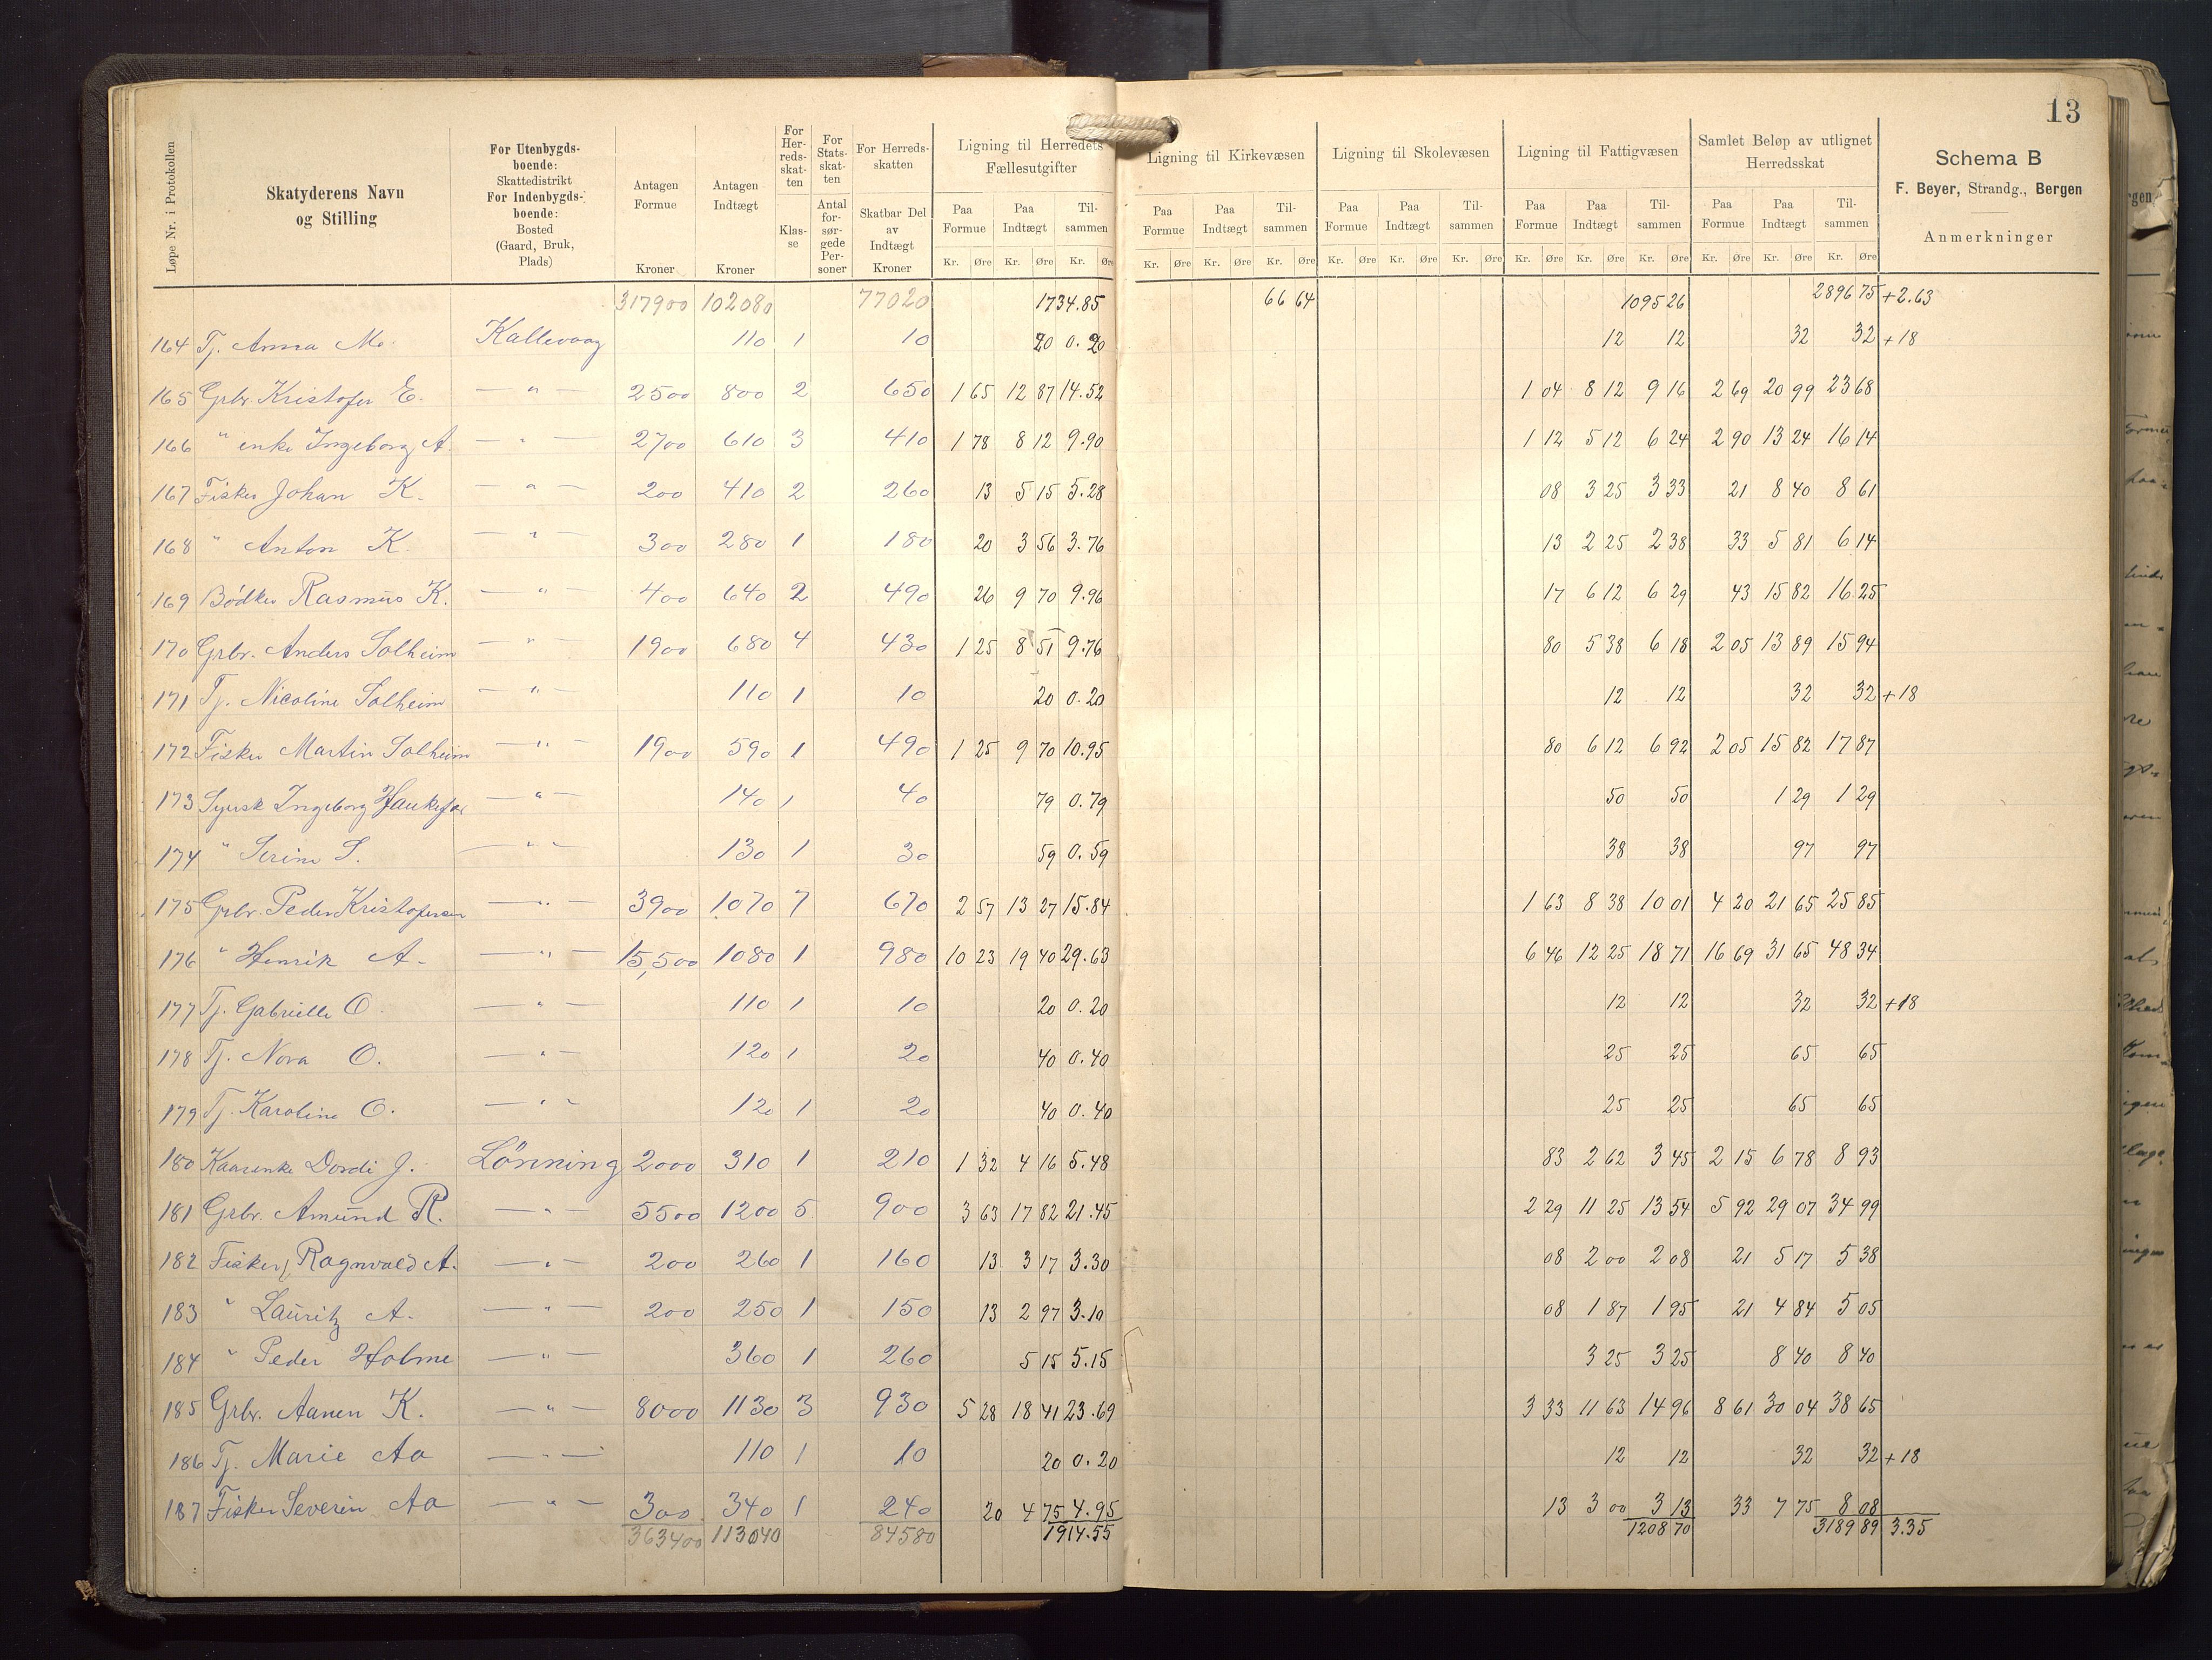 13
Løpe Nr. i Protokollen
Skatyderens Navn og Stilling
For Utenbygdsboende: Skattedistrikt For Indenbygdsboende: Bosted (Gaard, Bruk, Plads)
Antagen Formue Kroner
Antagen Indtægt Kroner
For Herredsskatten Klasse
For Statsskatten Antal forsørgede Personer
For Herredsskatten Skatbar Del av Indtægt Kroner
Ligning til Herredets Fællesutgifter
Paa Formue Paa Indtægt Tilsammen
Kr. Øre Kr. Øre Kr. Øre
Ligning til Kirkevæsen
Paa Formue Paa Indtægt Tilsammen
Kr. Øre Kr. Øre Kr. Øre
Ligning til Skolevæsen
Paa Formue Paa Indtægt Tilsammen
Kr. Øre Kr. Øre Kr. Øre
Ligning til Fattigvæsen
Paa Formue Paa Indtægt Tilsammen
Kr. Øre Kr. Øre Kr. Øre
Samlet Beløp av utlignet Herredsskat
Paa Formue Paa Indtægt Tilsammen
Kr. Øre Kr. Øre Kr. Øre
Schema B
F. Beyer, Strandg., Bergen
Anmerkninger
317900 102080 77020 1734.85 66 64 1095 26 2896 75 +2.63
164 Tj. Anna M. Kallevaag 110 1 10 20 0.20 12 12 32 32 +18
165 Grbr. Kristofer E. — " — 2500 800 2 650 1 65 12 87 14.52 1 04 8 12 9 16 2 69 20 99 23 68
166 " enke Ingeborg A. — " — 2700 610 3 410 1 78 8 12 9.90 1 12 5 12 6 24 2 90 13 24 16 14
167 Fisker Johan K. — " — 200 410 2 260 13 5 15 5.28 08 3 25 3 33 21 8 40 8 61
168 " Anton K. — " — 300 280 1 180 20 3 56 3.76 13 2 25 2 38 33 5 81 6 14
169 Bödker Rasmus K. — " — 400 640 2 490 26 9 70 9.96 17 6 12 6 29 43 15 82 16 25
170 Grbr. Anders Solheim — " — 1900 680 4 430 1 25 8 51 9.76 80 5 38 6 18 2 05 13 89 15 94
171 Tj. Nicoline Solheim — " — 110 1 10 20 0.20 12 12 32 32 +18
172 Fisker Martin Solheim — " — 1900 590 1 490 1 25 9 70 10.95 80 6 12 6 92 2 05 15 82 17 87
173 Sypsk Ingeborg — " — 140 1 40 79 0.79 50 50 1 29 1 29
174 " Serine S. — " — 130 1 30 59 0.59 38 38 97 97
175 Grbr. Peder Kristofersen — " — 3900 1070 7 670 2 57 13 27 15.84 1 63 8 38 10 01 4 20 21 65 25 85
176 " Henrik A. — " — 15,500 1080 1 980 10 23 19 40 29.63 6 46 12 25 18 71 16 69 31 65 48 34
177 Tj. Gabrielle O. — " — 110 1 10 20 0.20 12 12 32 32 +18
178 Tj. Nora O. — " — 120 1 20 40 0.40 25 25 65 65
179 Tj. Karoline O. — " — 120 1 20 40 0.40 25 25 65 65
180 Kaarenke Dordi J. Lönning 2000 310 1 210 1 32 4 16 5.48 83 2 62 3 45 2 15 6 78 8 93
181 Grbr. Amund R. — " — 5500 1200 5 900 3 63 17 82 21.45 2 29 11 25 13 54 5 92 29 07 34 99
182 Fisker Ragnvald A. — " — 200 260 1 160 13 3 17 3.30 08 2 00 2 08 21 5 17 5 38
183 " Lauritz A. — " — 200 250 1 150 13 2 97 3.10 08 1 87 1 95 21 4 84 5 05
184 " Peder Holme — " — 360 1 260 5 15 5.15 3 25 3 25 8 40 8 40
185 Grbr. Aanen K. — " — 8000 1130 3 930 5 28 18 41 23.69 3 33 11 63 14 96 8 61 30 04 38 65
186 Tj. Marie Aa — " — 110 1 10 20 0.20 12 12 32 32 +18
187 Fisker Severin Aa — " — 300 340 1 240 20 4 75 4.95 13 3 00 3 13 33 7 75 8 08
363400 113040 84580 1914.55 1208 70 3189 89 3.35